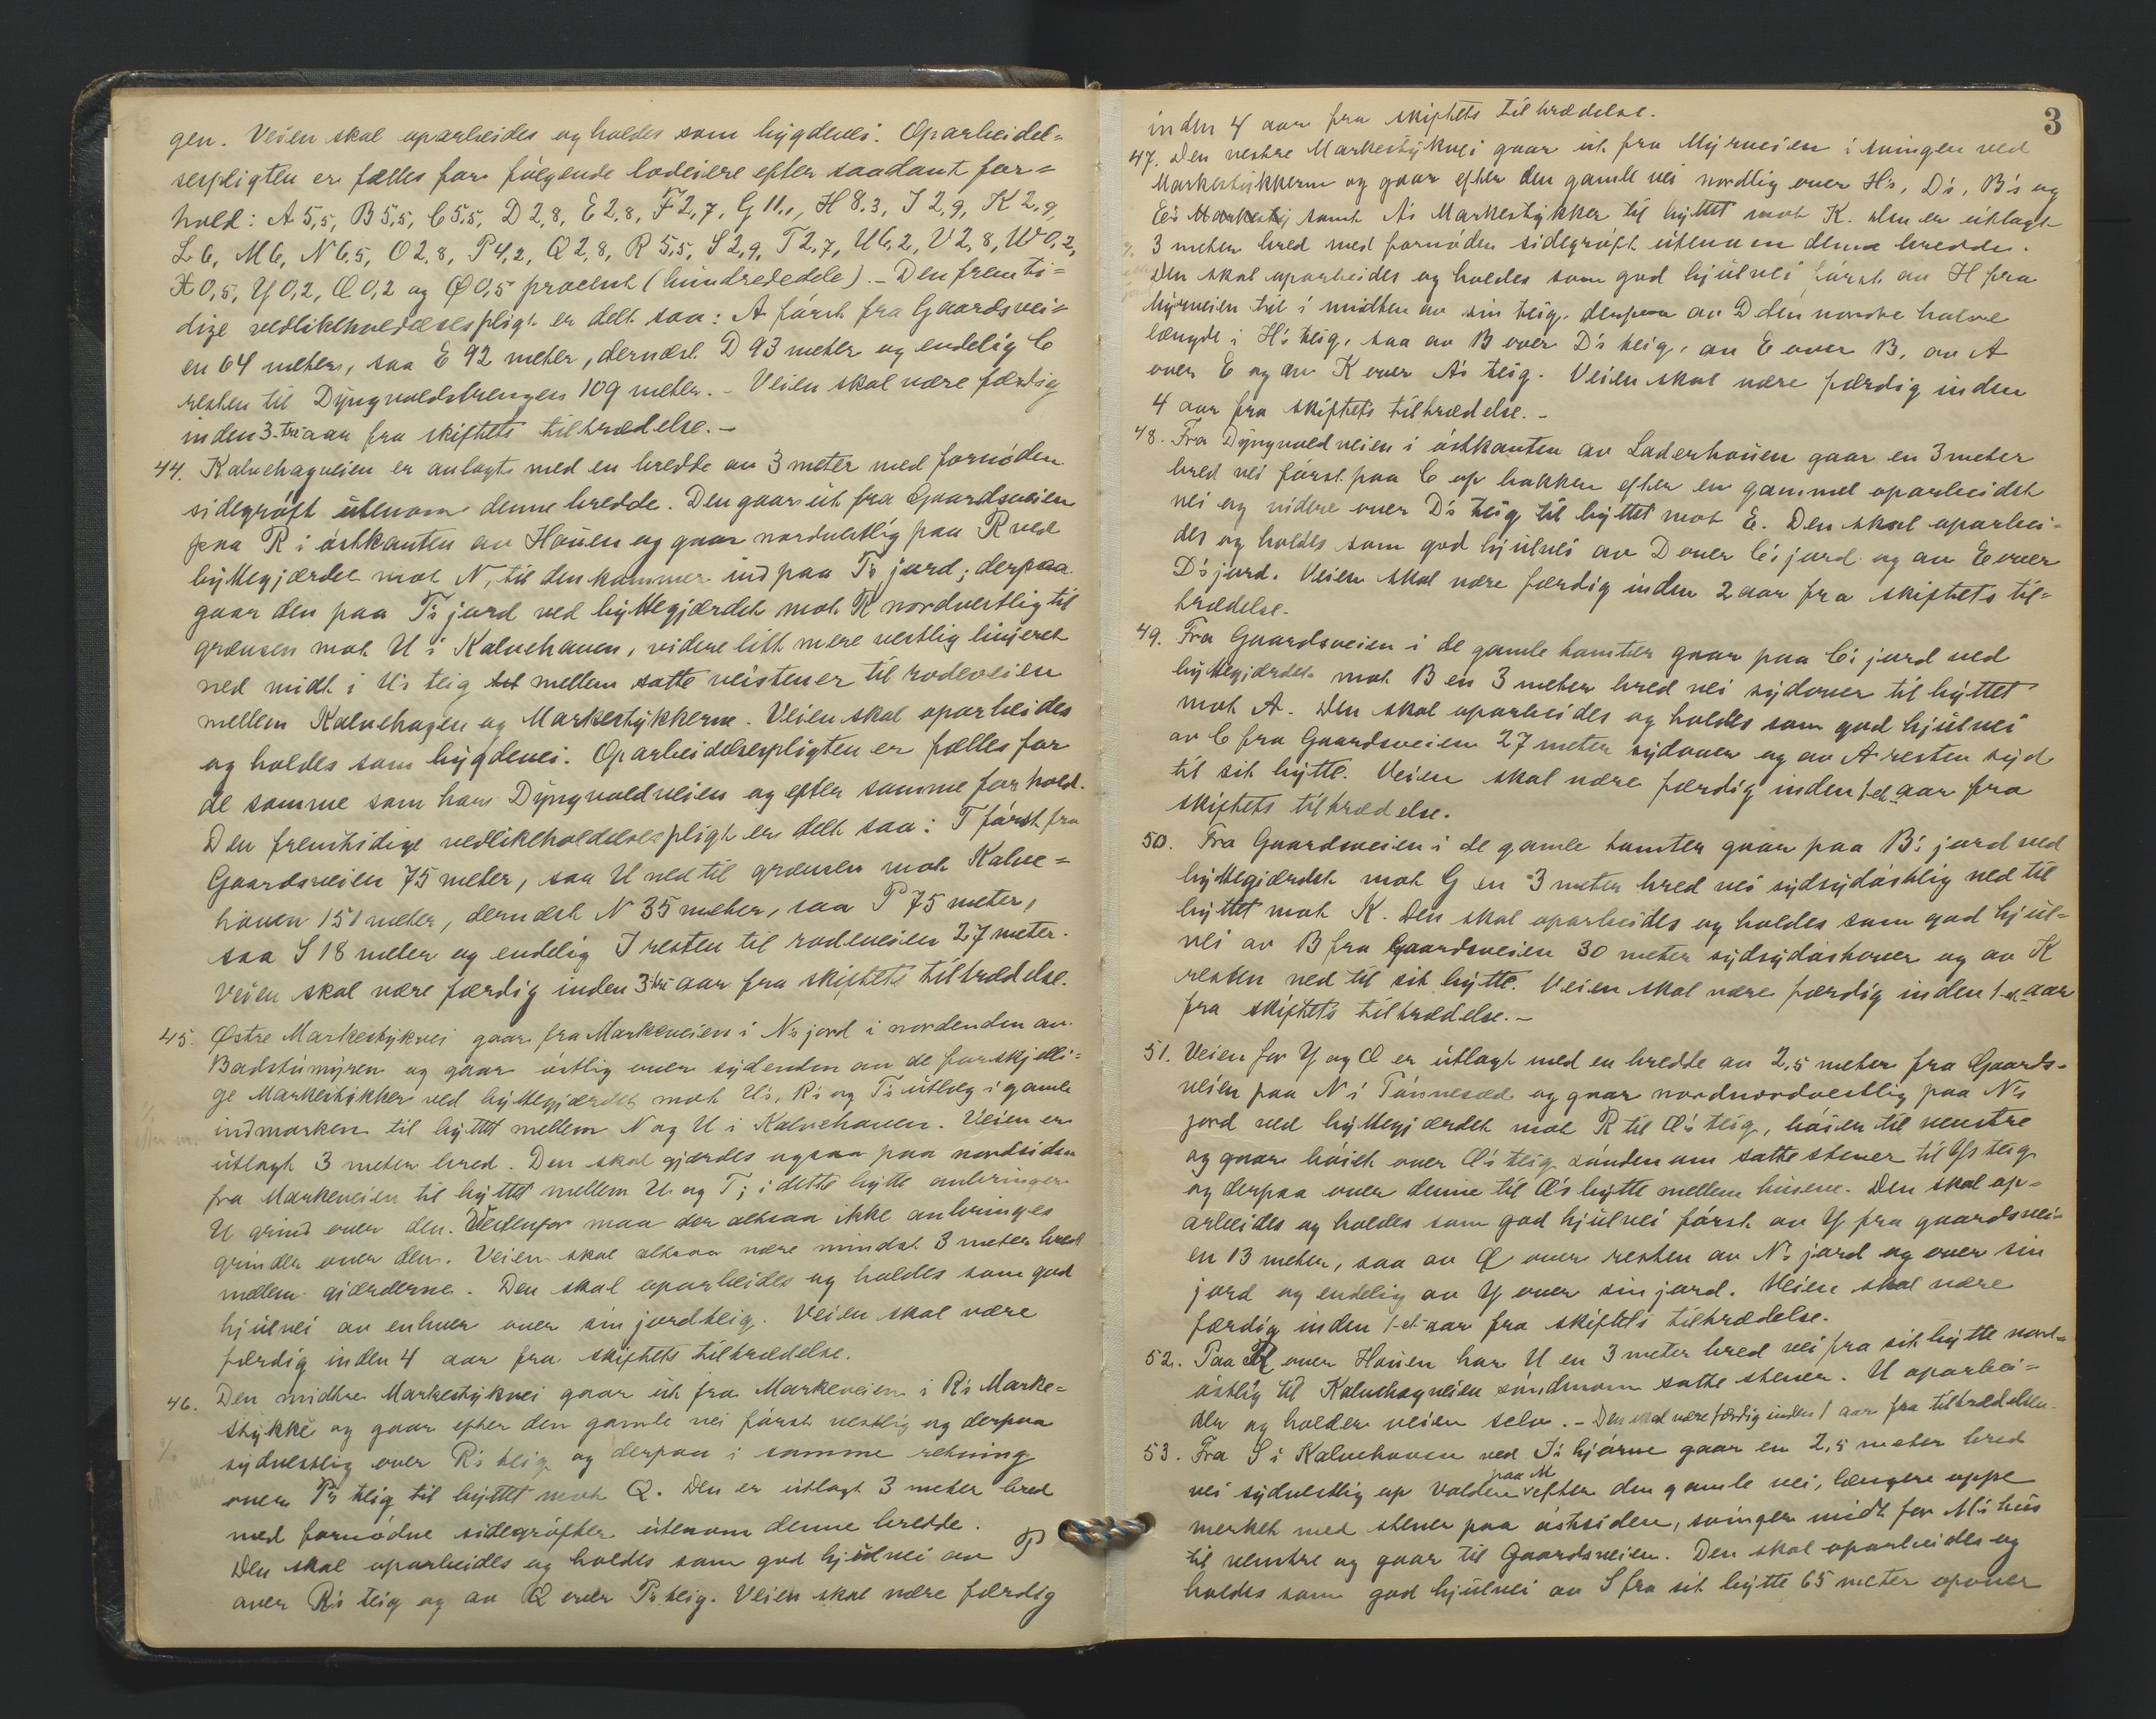 gen. Veien skal oparbeides og holdes som bygdevei. Oparbeidel=
sespligten er fælles for følgende lodeiere efter saadant for=
hold: A 5,5, B 5,5, C 5,5, D 2,8, E 2,8, F 2,7, G 11,1, H 8,3, J 2,9, K 2,9,
L 6, M 6, N 6,5, O 2,8, P 4,2, Q 2,8, R 5,5, S 2,9, T 2,7, U 6,2, V 2,8, W 0,2,
X 0,5, Y 0,2, Æ 0,2 og Ø 0,5 procent (hundrededele). - Den fremti=
dige vedlikeholdelsespligt er delt saa: A først fra Gaardsvei=
en 64 meter, saa E 92 meter, dernæst D 93 meter og endelig C
resten til Dyngvoldstrengen 109 meter. - Veien skal være færdig
inden 3-tre aar fra skiftets tiltrædelse. -
44. Kalvehagveien er anlagt med en bredde av 3 meter med fornøden
sidegrøft utenom denne bredde. Den gaar ut fra Gaardsveien
paa R i østkanten av Hauen og gaar nordvestlig paa R ved
byttegjærdet mot N, til den kommer ind paa T's jord; derpaa
gaar den paa T's jord ved byttegjærdet mot R nordvestlig til
grænsen mot U i Kalvehauen, videre litt mere vestlig linjeret
ned midt i U's teig til mellem satte veistener til rodeveien
mellem Kalvehagen og Markestykkerne. Veien skal oparbeides
og holdes som bygdevei. Oparbeidelsespligten er fælles for
de samme som har Dyngvoldveien og efter samme forhold.
Den fremtidige vedlikeholdelsespligt er delt saa: T først fra
Gaardsveien 75 meter, saa U ned til grænsen mot Kalve=
hauen 151 meter, dernæst N 35 meter, saa P 75 meter,
saa S 18 meter og endelig J resten til rodeveien 27 meter.
Veien skal være færdig inden 3-tre aar fra skiftets tiltrædelse.
45. Østre Markestykvei gaar fra Markeveien i N's jord i nordenden av
Badstumyren og gaar østlig over sydenden av de forskjelli=
ge Markestykker ved byttegjærdet mot U's, R's og T's utlæg i gamle
indmarken til byttet mellem N og U i Kalvehauen. Veien er
utlagt 3 meter bred. Den skal gjærdes ogsaa paa nordsiden
fra Markeveien til byttet mellem U og T; i dette bytte anbringer
U grind over den. Vestenfor maa der altsaa ikke anbringes
grinder over den. Veien skal altsaa være mindst 3 meter bred
mellem gjærderne. Den skal oparbeides og holdes som god
hjulvei av enhver over sin jordteig. Veien skal være
færdig inden 4 aar fra skiftets tiltrædelse.
46. Den midtre Markestykvei gaar ut fra Markeveien i R's Marke=
stykke og gaar efter den gamle vei først vestlig og derpaa
sydvestlig over R's teig og derpaa i samme retning
over P's teig til byttet mot Q. Den er utlagt 3 meter bred
med fornødne sidegrøfter utenom denne bredde.
Den skal oparbeides og holdes som god hjulvei av P
over R's teig og av Q over P's teig. Veien skal være færdig
3
inden 4 aar fra skiftets tiltrædelse.
47. Den vestre Markestykvei gaar ut fra Myrveien i svingen ved
Markestykkerne og gaar efter den gamle vei nordlig over H's, D's, B's og
E's Markestj samt A's Markestykker til byttet mot K. Den er utlagt
3 meter bred med fornøden sidegrøft utenom denne bredde.
Den skal oparbeides og holdes som god hjulvei først av H fra
Myrveien til i midten av sin teig, derpaa av D den nordre halve
længde i H's teig, saa av B over D's teig, av E over B, av A
over E og av K over A's teig. Veien skal være færdig inden
4 aar fra skiftets tiltrædelse. -
48. Fra Dyngvoldveien i østkanten av Laderhauen gaar en 3 meter
bred vei først paa C op bakken efter en gammel oparbeidet
vei og videre over D's teig til byttet mot E. Den skal oparbei=
des og holdes som god hjulvei av D over C's jord og av E over
D's jord. Veien skal være færdig inden 2 aar fra skiftets til=
trædelse.
49. Fra Gaardsveien i de gamle tomter gaar paa C's jord ved
byttegjærdet mot B en 3 meter bred vei sydover til byttet
mot A. Den skal oparbeides og holdes som god hjulvei
av C fra Gaardsveien 27 meter sydover og av A resten syd
til sit bytte. Veien skal være færdig inden 1-et aar fra
skiftets tiltrædelse.
50. Fra Gaardsveien i de gamle tomter gaar paa B's jord ved
byttegjærdet mot G en 3 meter bred vei sydsydøstlig ned til
byttet mot K. Den skal oparbeides og holdes som god hjul=
vei av B fra Gaardsveien 30 meter sydsydøstover og av K
resten ned til sit bytte. Veien skal være færdig inden 1-et aar
fra skiftets tiltrædelse. -
51. Veien for Y og Æ er utlagt med en bredde av 2,5 meter fra Gaards-
veien paa N i Tønnesæd og gaar nordnordvestlig paa N's
jord ved byttegjærdet mot R til Æ's teig, bøier til venstre
og gaar bøiet over Æ's teig søndenom satte stener til Y's teig
og derpaa over denne til Æ's bytte mellem husene. Den skal op=
arbeides og holdes som god hjulvei først av Y fra gaardsvei=
en 13 meter, saa av Æ over resten av N's jord og over sin
jord og endelig av Y over sin jord. Veien skal være
færdig inden 1-et aar fra skiftets tiltrædelse.
52. Paa R over Hauen har U en 3 meter bred vei fra sit bytte nord=
østlig til Kalvehagveien søndenom satte stener. U oparbei=
der og holder veien selv. - Den skal være færdig inden 1 aar fra tiltrædelsen.
53. Fra S i Kalvehauen ved J's hjørne gaar en 2,5 meter bred
vei sydvestlig op Volden paa M efter den gamle vei, længere oppe
merket med stener paa østsiden, svinger midt for M's hus
til venstre og gaar til Gaardsveien. Den skal oparbeides og
holdes som god hjulvei av S fra sit bytte 65 meter opover